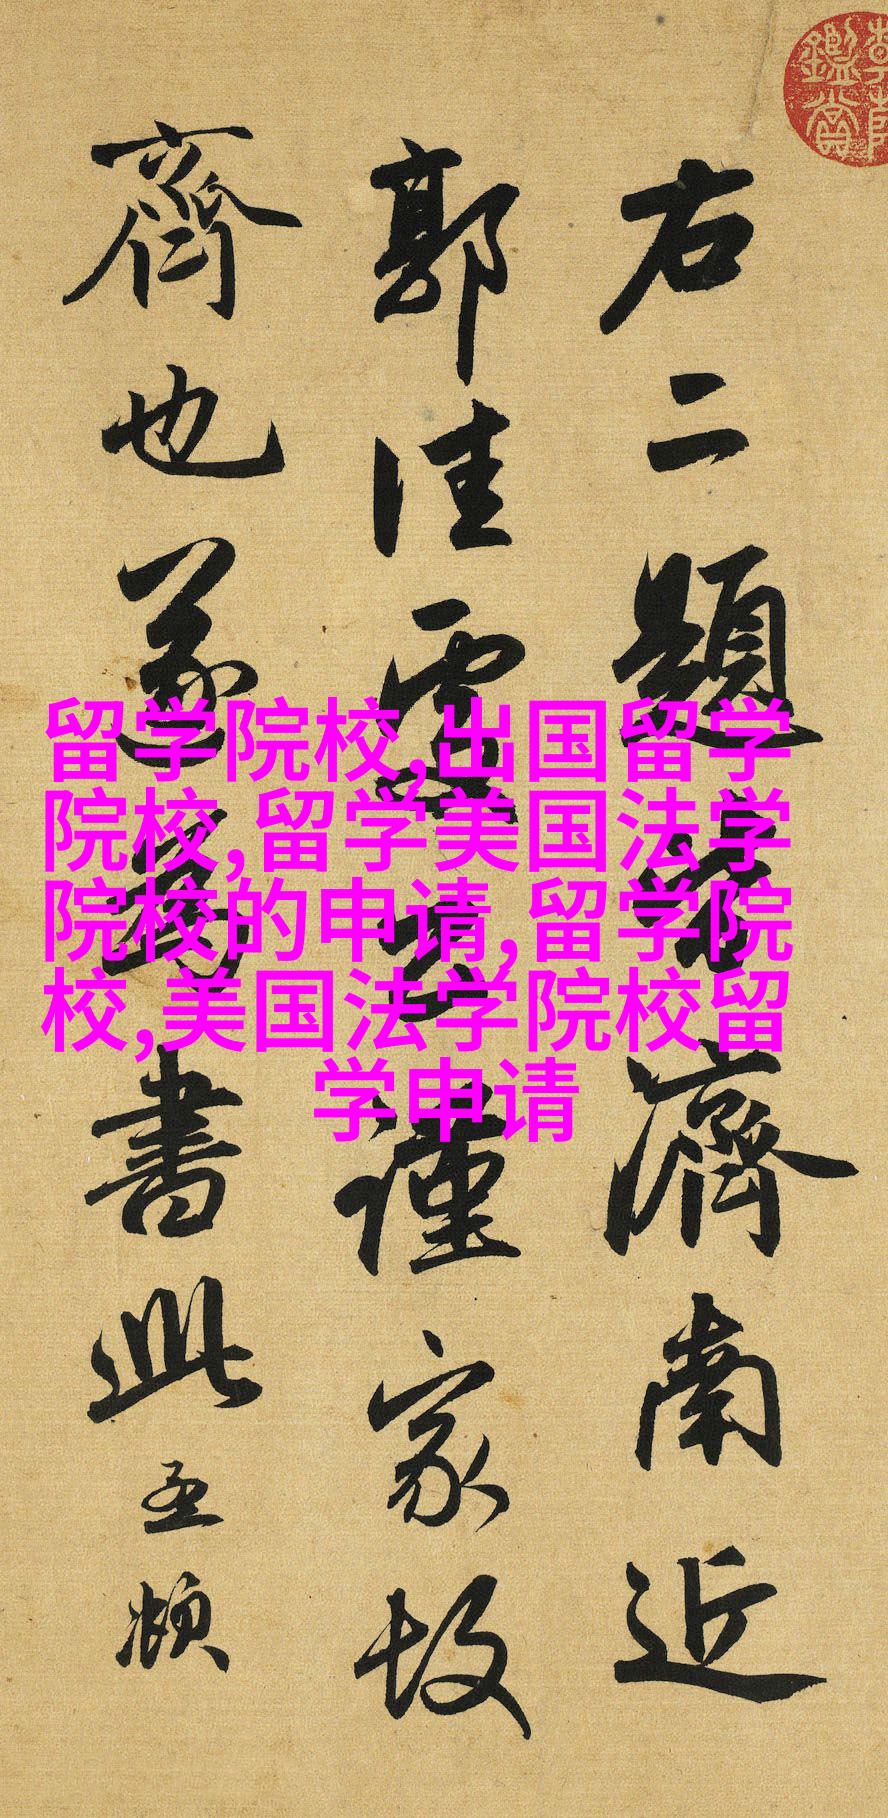 右二題皆濟南近
郭佳處公謹家故
齊也遂為書此孟頫
留学院校,出国留学
院校,留学美国法学
院校的申请,留学院
校,美国法学院校留
学申请